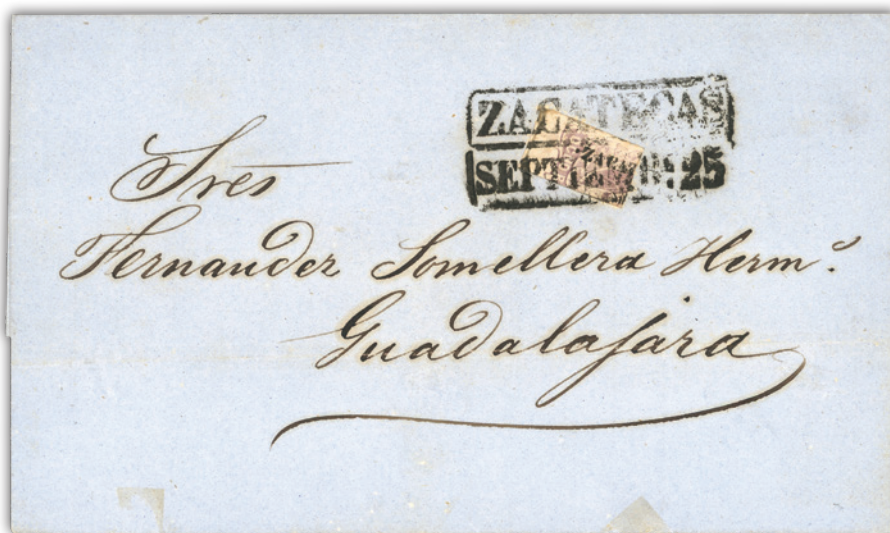 ZACATECAS
SEPTIEMBRE 25
Sres
Fernandez Somellera Herm.ˢ
Guadalajara